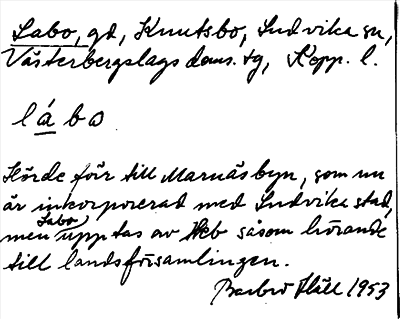 Labo, gd, Knutsbo, Ludvika sn,
Västerbergslags doms. tg, Kopp. l.
l á b o
Hörde förr till Marnäsbyn, som nu
är inkorporerad med Ludvika stad,
men Labo upptas av Jkb såsom hörande
till landsförsamlingen.
Barbro Häll 1953